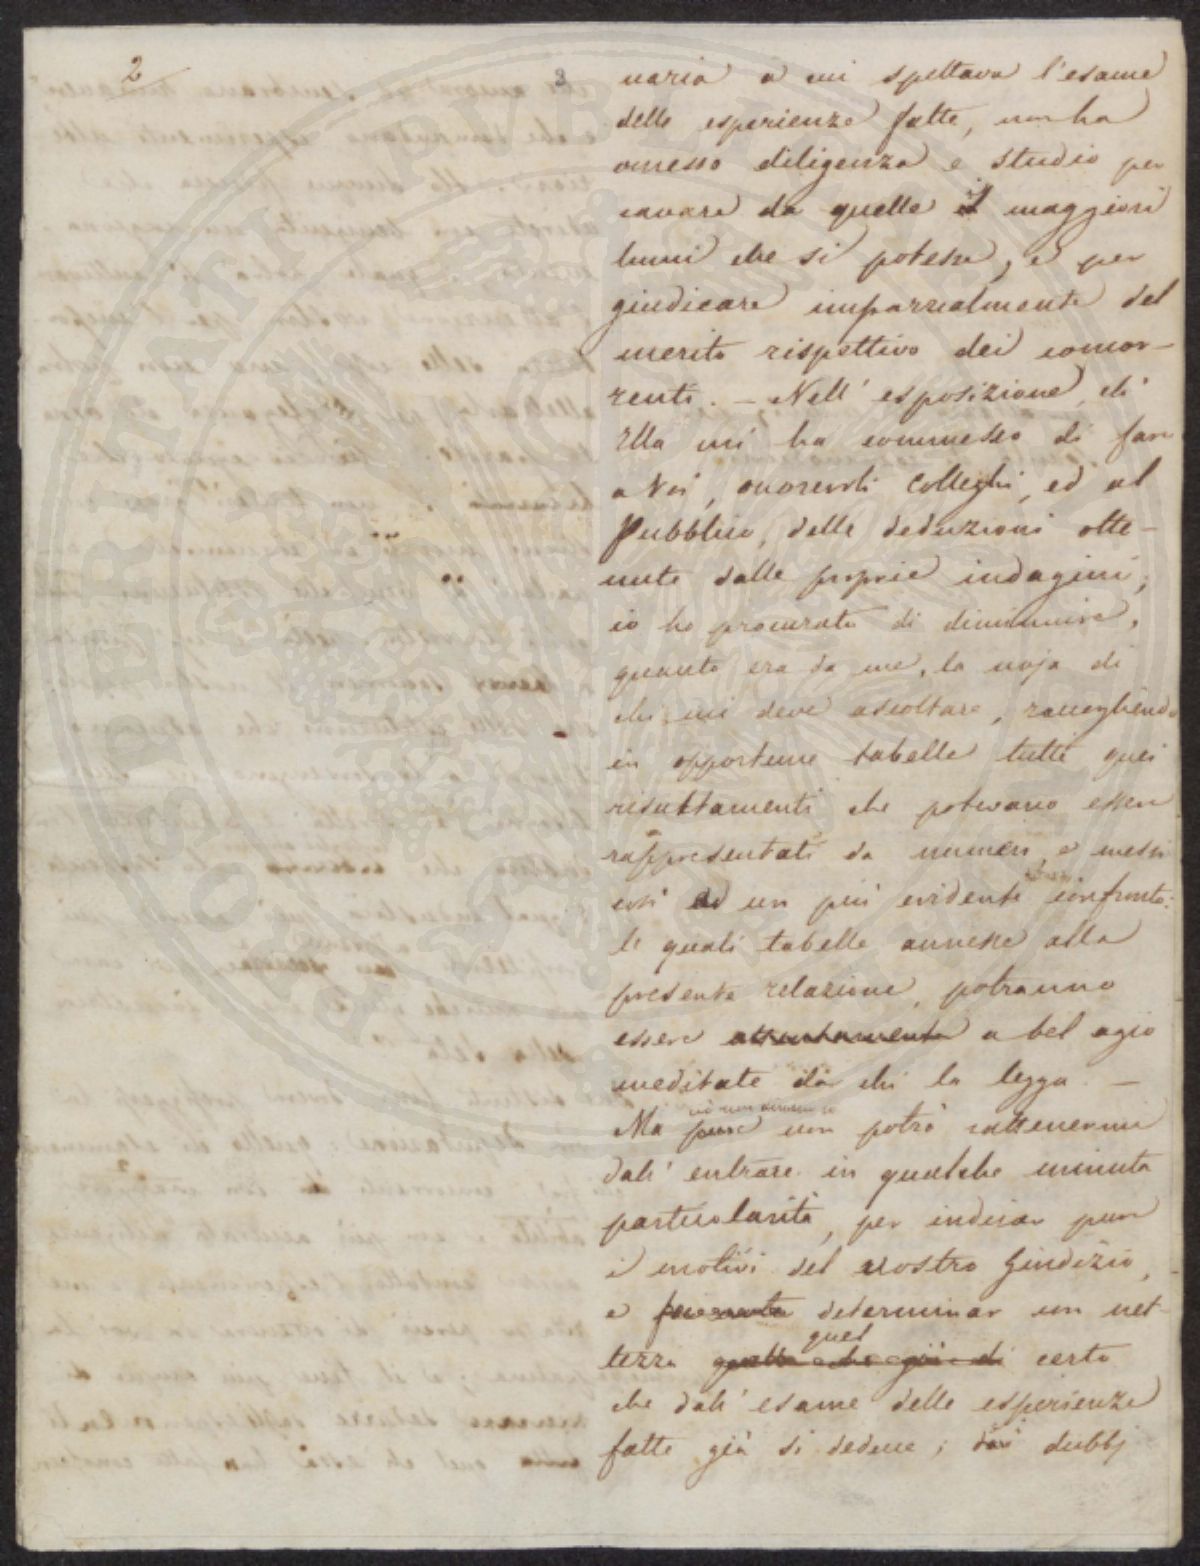 2
3
naria a cui spettava l'esame
delle esperienze fatte, non ha
omesso diligenza e studio per
cavare da quelle i maggiori
lumi che si potesse, e per
giudicare imparzialmente del
merito rispettivo dei concor-
renti. - Nell' esposizione, ch'
Ella mi ha commesso di fare
a Voi, onorevoli Colleghi, ed al
Pubblico, delle deduzioni otte-
nute dalle proprie indagini,
io ho procurato di diminuire,
quanto era da me, la noja di
chi mi deve ascoltare, raccogliendo
in opportune tabelle tutti quei
risultamenti che potevano essere
rappresentati da numeri, e messi
così ad un più evidente confronto:
le quali tabelle annesse alla
presente relazione, potranno
essere attentamente a bel agio
meditate da chi la legga. -
ciò non ostante
Ma pure non potrò rattenermi
dall' entrare in qualche minuta
particolarità, per indicar pure
i motivi del nostro Giudizio,
e determinar con net-
quel
tezza quello che già di certo
che dall' esame delle esperienze
fatte già si deduce; dai dubbj